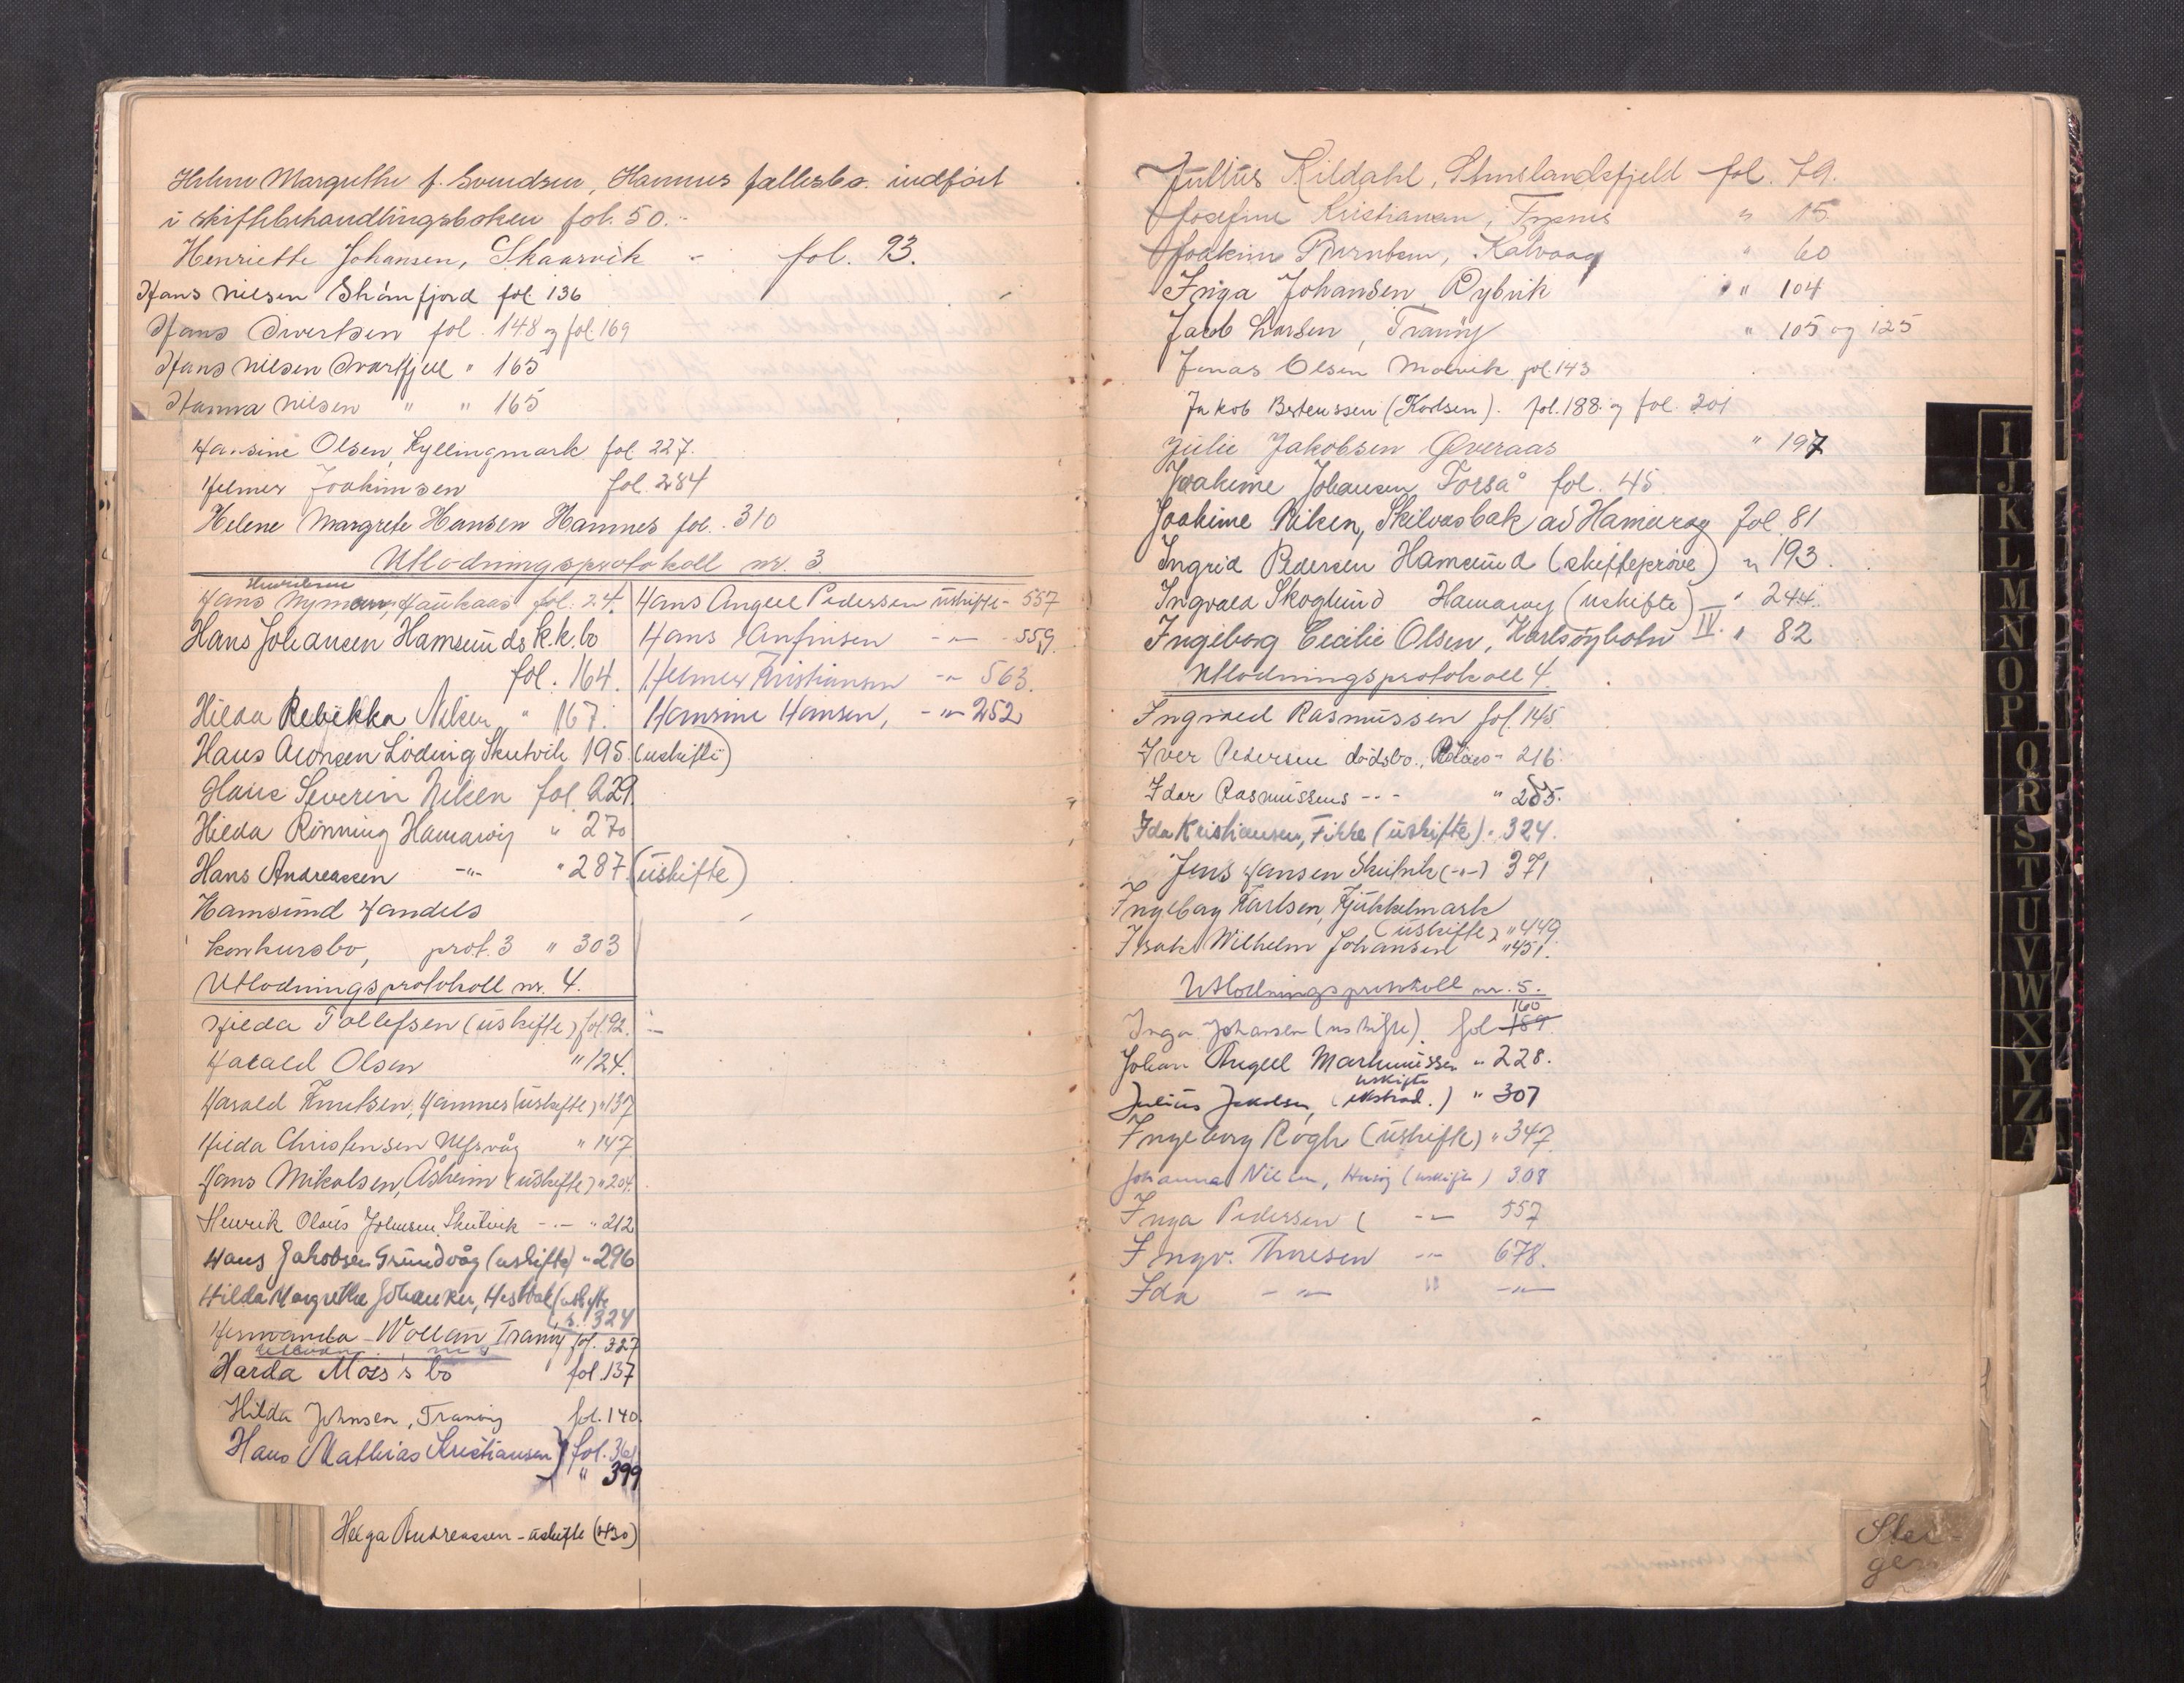 Helene Margrethe f. Svendsen, Hamnes fællesbo. indført
i skiftebehandlingsboken fol. 50.-
Henriette Johansen, Skaarvik - fol. 93.
Hans Nilsen Skåmfjord fol 136
Hans Sivertsen fol. 148 og fol. 169
Hans Nilsen Svartfjell " 165
Hanna Nilsen " " 165
Hansine Olsen, Kyllingmark fol 227.
Helmer Joakimsen fol. 284
Helene Margrete Hansen Hamnes fol. 310
Utlodningsprotokoll nr. 3
Hans Nyman, Haukaas fol. 24.
Hans Johansen Hamsunds k.k. bo
fol. 164.
Hilda Rebekka Nilsen " 167.
Hans Aronsen Löding Skutvik 195. (uskifte)
Hans Severin Nilsen fol. 229.
Hilda Rönning Hamaröy " 270
Hans Andreassen -"- " 287. (uskifte)
Hamsund Handels
konkursbo, prot. 3 " 303
Hans Angell Pedersen uskifte - 557
Hans Anfinsen -"- - 559.
Helmer Kristiansen -"- 563.
Hansine Hansen, -"- 252
Utlodningsprotokoll nr. 4.
Hilda Tollefsen (uskifte) fol. 92.
Harald Olsen " 124.
Harald Knutsen, Hamnes (uskifte) " 137
Hilda Christensen Ulfsvåg " 147.
Hans Mikalsen, Åsheim (uskifte) " 204.
Henrik Olaus Johansen Skutvik -"- " 212
Hans Jakobsen Grundvåg (uskifte) " 296
Hilda Margrethe Johansen, (uskifte
s. 324
Hermanda Wollan Tranöy fol. 327
Harda Moss's bo fol. 137
Hilda Johnsen, Tranöy fol. 140.
Hans Mathias Kristiansen) fol. 361
" 399
Helga Andreassen - uskifte (430)
Julius Kildahl, fol. 79.
Josefine Kristiansen, " 15
Joakim Kalvaag " 60
Inga Johansen Rybvik " 104
Jacob Larsen, Tranöy " 105 og 125
Jonas Olsen Molvik fol. 143
Jakob Berteussen (Karlsen). fol. 188. og fol. 201
Julie Jakobsen Øveraas " 197
Joakime Johansen Forså fol. 45
Joakime Nilsen, Skilvasbak ad Hamarøy fol 81
Ingrid Pedersen Hamsund (skifteprøve) " 193.
Ingvald Skoglund Hamarøy (uskifte) " 244.
Ingeborg Cecilie Olsen, Karlsöyholm IV. " 82
Utlodningsprotokoll 4.
Ingvald Rasmussen fol. 145.
Iver Pedersen dødsbo., - 216.
Idar Rasmussens -"- " 285.
Ida Kristiansen, Fikke (uskifte) " 324.
Jens Hansen Skutvik (-"-) 371
Ingeborg Karlsen, Kjukkelmark
(uskifte) " 449
Isak Wilhelm Johansen " 451.
Utlodningsprotokoll nr. 5.
160
Inga Johansen (uskifte). fol 159
Johan Angell Markussen " 228.
uskifte
Julius Jakobsen, (ekstrad.) " 307
Ingeborg Rögh (uskifte) " 347
Johanna Nilsen, (uskifte) 308
Inga Pedersen ( -"- 557
Ingv. Thoresen -"- 678.
Ida -"- " -"-
Stei-
gen
I
J
K
L
M
N
O
P
Q
R
S
T
U
V
W
X
Y
Z